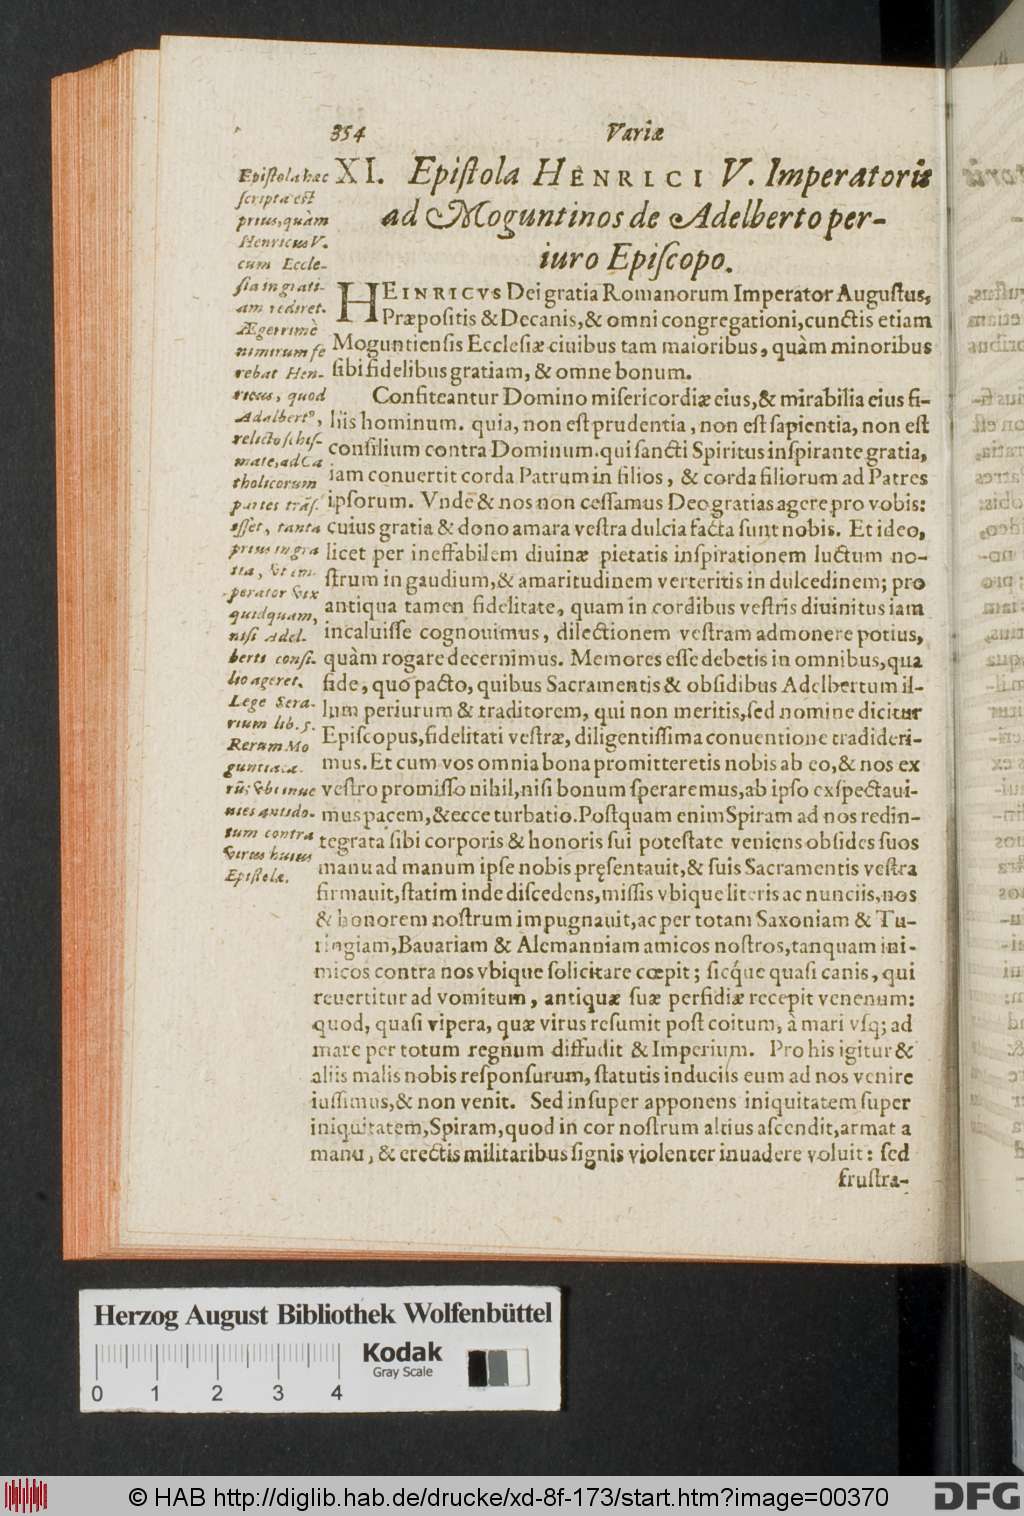 354 Variæ
XI. Epiſtola HENRICI V. Imperatoris
ad Moguntinos de Adelberto per-
iuro Epiſcopo.
Epiſtola hæc
ſcripta eſt
prius, quàm
Henricus V.
cum Eccle-
ſia in grati-
am rediret.
Ægerrimè
nimirum fe
rebat Hen-
ricus, quod
Adalbertꝰ,
relicto ſchiſ-
mate, ad Ca
tholicorum
partes trãſ-
iſſet, tanta
prius ingra
tia, vt im-
perator vix
quidquam,
niſi Adel-
berti conſi-
lio ageret.
Lege Sera-
rium lib. 5.
Rerum Mo
guntiaca-
rũ; vbi inue
nies antido-
tum contra
virus huius
Epiſtolæ.
HEINRICVS Dei gratia Romanorum Imperator Auguſtus,
Præpoſitis & Decanis, & omni congregationi, cunctis etiam
Moguntienſis Eccleſiæ ciuibus tam maioribus, quàm minoribus
ſibi fidelibus gratiam, & omne bonum.
Confiteantur Domino miſericordiæ eius, & mirabilia eius fi-
liis hominum. quia, non eſt prudentia, non eſt ſapientia, non eſt
conſilium contra Dominum. qui ſancti Spiritus inſpirante gratia,
iam conuertit corda Patrum in filios, & corda filiorum ad Patres
ipſorum. Vnde & nos non ceſſamus Deo gratias agere pro vobis:
cuius gratia & dono amara veſtra dulcia facta ſunt nobis. Et ideo,
licet per ineffabilem diuinæ pietatis inſpirationem luctum no-
ſtrum in gaudium, & amaritudinem verteritis in dulcedinem; pro
antiqua tamen fidelitate, quam in cordibus veſtris diuinitus iam
incaluiſſe cognouimus, dilectionem veſtram admonere potius,
quàm rogare decernimus. Memores eſſe debetis in omnibus, qua
fide, quo pacto, quibus Sacramentis & obſidibus Adelbertum il-
lum periurum & traditorem, qui non meritis, ſed nomine dicitur
Epiſcopus, fidelitati veſtræ, diligentiſſima conuentione tradideri-
mus. Et cum vos omnia bona promitteretis nobis ab eo, & nos ex
veſtro promiſſo nihil, niſi bonum ſperaremus, ab ipſo exſpectaui-
mus pacem, & ecce turbatio. Poſtquam enim Spiram ad nos redin-
tegrata ſibi corporis & honoris ſui poteſtate veniens obſides ſuos
manu ad manum ipſe nobis pręſentauit, & ſuis Sacramentis veſtra
firmauit, ſtatim inde diſcedens, miſſis vbique literis ac nunciis, nos
& honorem noſtrum impugnauit, ac per totam Saxoniam & Tu-
ringiam, Bauariam & Alemanniam amicos noſtros, tanquam ini-
micos contra nos vbique ſolicitare cœpit; ſicq́ue quaſi canis, qui
reuertitur ad vomitum, antiquæ ſuæ perfidiæ recepit venenum:
quod, quaſi vipera, quæ virus reſumit poſt coitum, à mari vſq; ad
mare per totum regnum diffudit & Imperium. Pro his igitur &
aliis malis nobis reſponſurum, ſtatutis induciis eum ad nos venire
iuſſimus, & non venit. Sed inſuper apponens iniquitatem ſuper
iniquitatem, Spiram, quod in cor noſtrum altius aſcendit, armata
manu, & erectis militaribus ſignis violenter inuadere voluit: ſed
fruſtra-
Herzog August Bibliothek Wolfenbüttel
Kodak
Gray Scale
0 1 2 3 4
© HAB http://diglib.hab.de/drucke/xd-8f-173/start.htm?image=00370
DFG